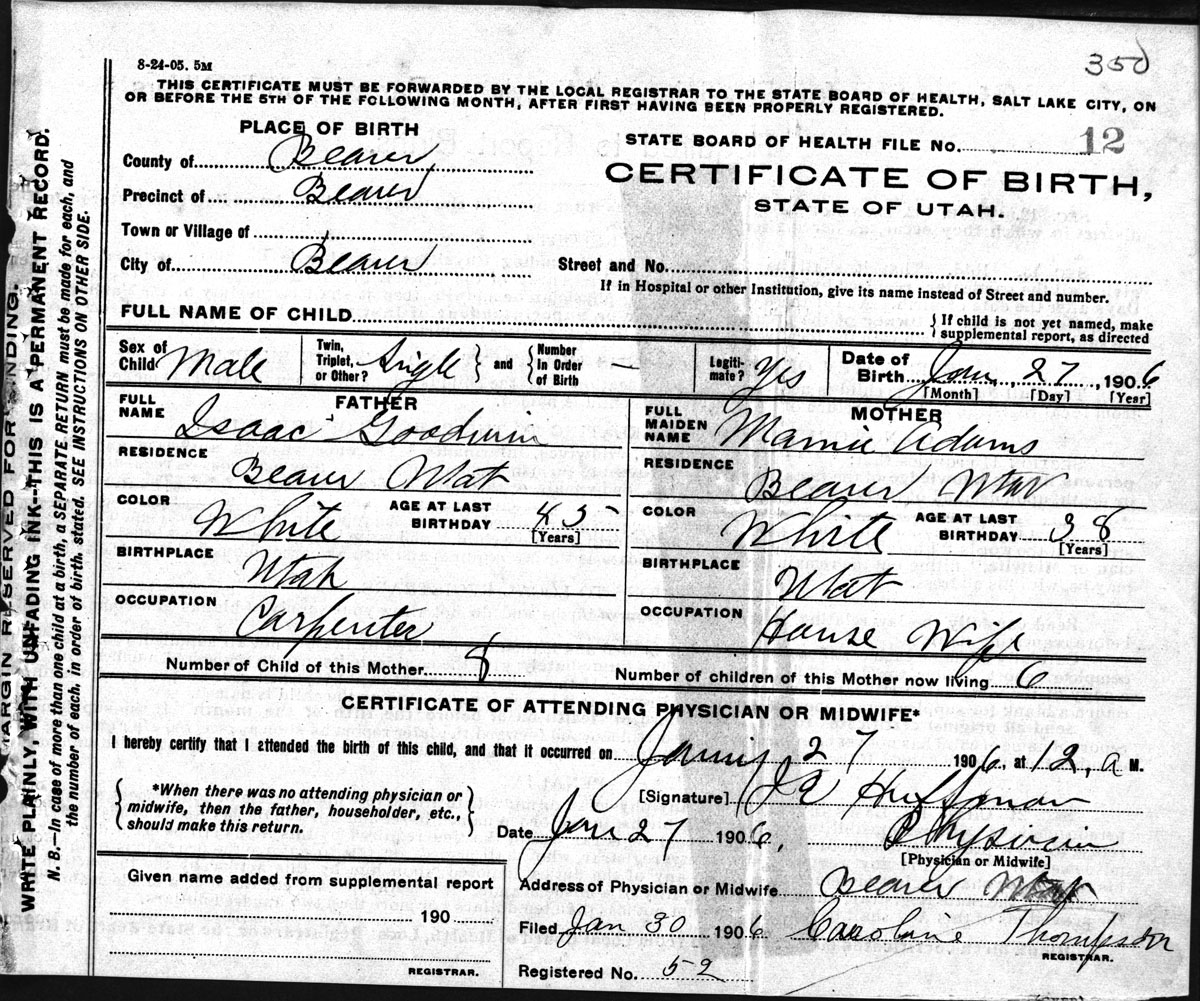 350
8-24-05. 5M
THIS CERTIFICATE MUST BE FORWARDED BY THE LOCAL REGISTRAR TO THE STATE BOARD OF HEALTH, SALT LAKE CITY, ON
OR BEFORE THE 5TH OF THE FOLLOWING MONTH, AFTER FIRST HAVING BEEN PROPERLY REGISTERED.
PLACE OF BIRTH
STATE BOARD OF HEALTH FILE No. 12
CERTIFICATE OF BIRTH,
STATE OF UTAH.
County of Beaver
Precinct of Beaver
Town or Village of
City of Beaver
Street and No.
If in Hospital or other Institution, give its name instead of Street and number.
FULL NAME OF CHILD
{If child is not yet named, make
supplemental report, as directed
Sex of Child Male
Twin, Triplet, or Other? Single } and { Number In Order of Birth —
Legiti-mate? Yes
Date of Birth Jan, 27, 1906
[Month] [Day] [Year]
FATHER
FULL NAME Isaac Goodwin
RESIDENCE Beaver Utah
COLOR White
AGE AT LAST BIRTHDAY 45
[Years]
BIRTHPLACE Utah
OCCUPATION Carpenter
MOTHER
FULL MAIDEN NAME Mamie Adams
RESIDENCE Beaver Utah
COLOR White
AGE AT LAST BIRTHDAY 38
[Years]
BIRTHPLACE Utah
OCCUPATION House Wife
Number of Child of this Mother 8
Number of children of this Mother now living 6
CERTIFICATE OF ATTENDING PHYSICIAN OR MIDWIFE*
I hereby certify that I attended the birth of this child, and that it occurred on 27 1906, at 12, a M.
{ *When there was no attending physician or
midwife, then the father, householder, etc.,
should make this return. }
[Signature] Huffman
Date Jan 27 1906,
Physician
[Physician or Midwife]
Given name added from supplemental report
190
REGISTRAR.
Address of Physician or Midwife Beaver Utah
Filed Jan 30 1906 Caroline Thompson
REGISTRAR.
Registered No. 52
MARGIN RESERVED FOR BINDING.
WRITE PLAINLY, WITH UNFADING INK--THIS IS A PERMANENT RECORD.
N. B.—In case of more than one child at a birth, a SEPARATE RETURN must be made for each, and
the number of each, in order of birth, stated. SEE INSTRUCTIONS ON OTHER SIDE.